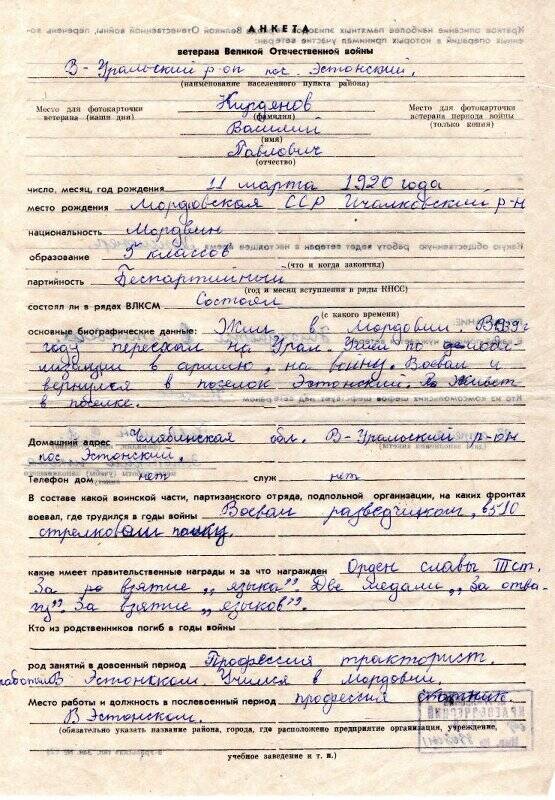 АНКЕТА
ветерана Великой Отечественной войны
В-Уральский р-он пос. Эстонский.
(наименование населенного пункта района)
Место для фотокарточки ветерана (наши дни)
Кирдянов
(фамилия)
Василий
(имя)
Павлович
(отчество)
Место для фотокарточки ветерана периода войны (только копия)
число, месяц, год рождения 11 марта 1920 года
место рождения Мордовская ССР Ичалковский р-н
национальность Мордвин
образование 5 классов
(что и когда закончил)
партийность Беспартийный
(год и месяц вступления в ряды КПСС)
состоял ли в рядах ВЛКСМ Состоял
(с какого времени)
основные биографические данные: Жил в Мордовии. В 1939 г
году переехал на Урал. Ушел по
в армию, на войну. Воевал и
вернулся в поселок Эстонский. Живет
в поселке.
Домашний адрес Челябинская обл. В-Уральский р-он
пос. Эстонский.
Телефон дом. нет служ нет
В составе какой воинской части, партизанского отряда, подпольной организации, на каких фронтах
воевал, где трудился в годы войны Воевал разведчиком, в 510
стрелковом полку.
какие имеет правительственные награды и за что награжден Орден славы III ст.
За взятие „языка”. Две медали „За отва-
гу”. За взятие „языков”.
Кто из родственников погиб в годы войны
род занятий в довоенный период Профессия тракторист.
работал в Эстонском. Учился в Мордовии.
Место работы и должность в послевоенный период профессия
В Эстонском.
(обязательно указать название района, города, где расположено предприятие организация, учреждение,
учебное заведение и т. п.)